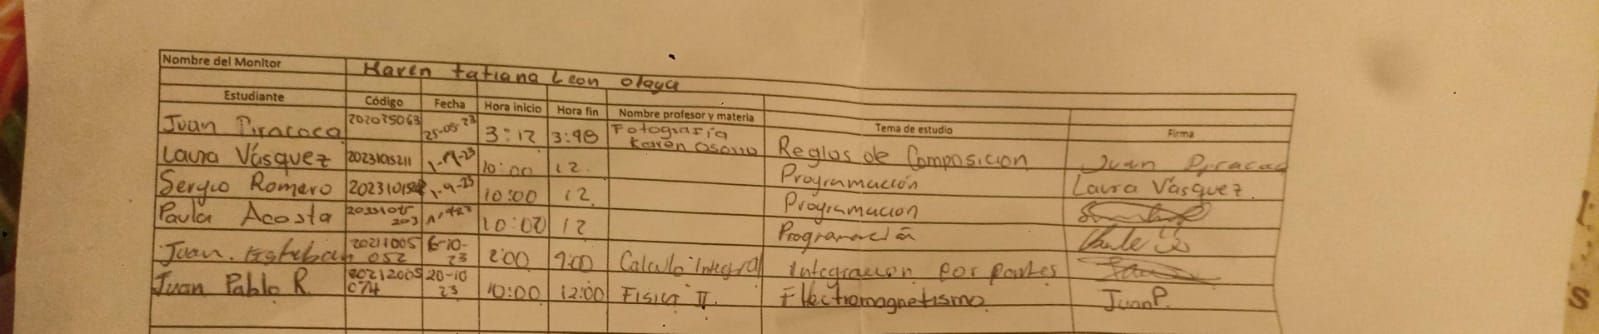 Nombre del Monitor Karen tatiana Leon olaya
Estudiante Código Fecha Hora inicio Hora fin Nombre profesor y materia Tema de estudio Firma
Juan Piracoca 25-05-23 3:12 Fotografía Karen Reglas de Composicion Juan
Laura Vásquez 10:00 12. Programación Laura Vásquez.
Sergio Romero 1-9-23 10:00 12 Programacion
Paula Acosta 12 Programación
Juan. Esteban 20211005 052 6-10-23 2:00 Calculo Integral Integracion por partes
Juan Pablo R. 20212005 074 20-10 23 10:00 12:00 Fisica II. Electromagnetismo Juan P.